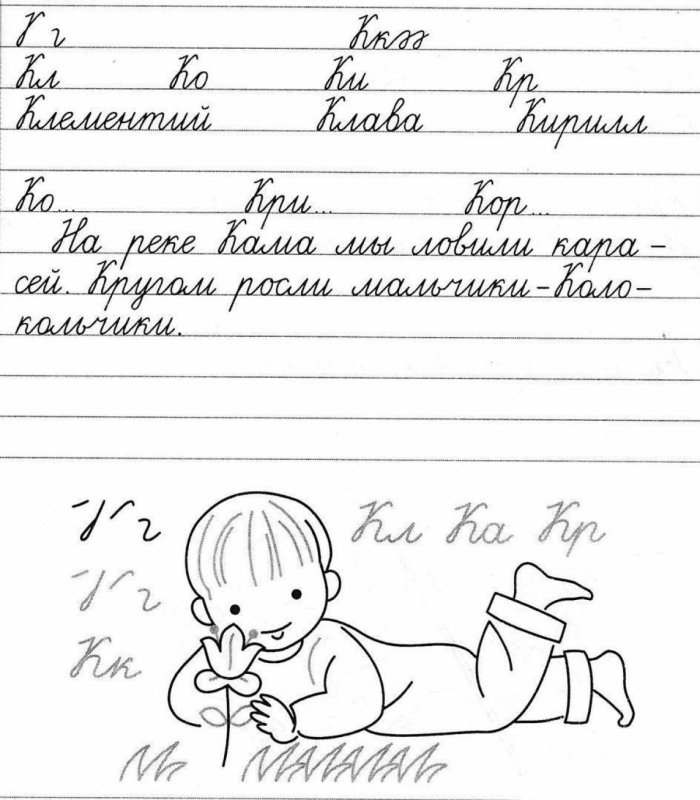 Г г Ккээ
Кл Ко Ки Кр
Клементий Клава Кирилл
Ко... Кри... Кор...
На реке Кама мы ловили кара-
сей. Кругом росли мальчики-Коло-
кольчики.
г Кл Ка Кр
г
Кк